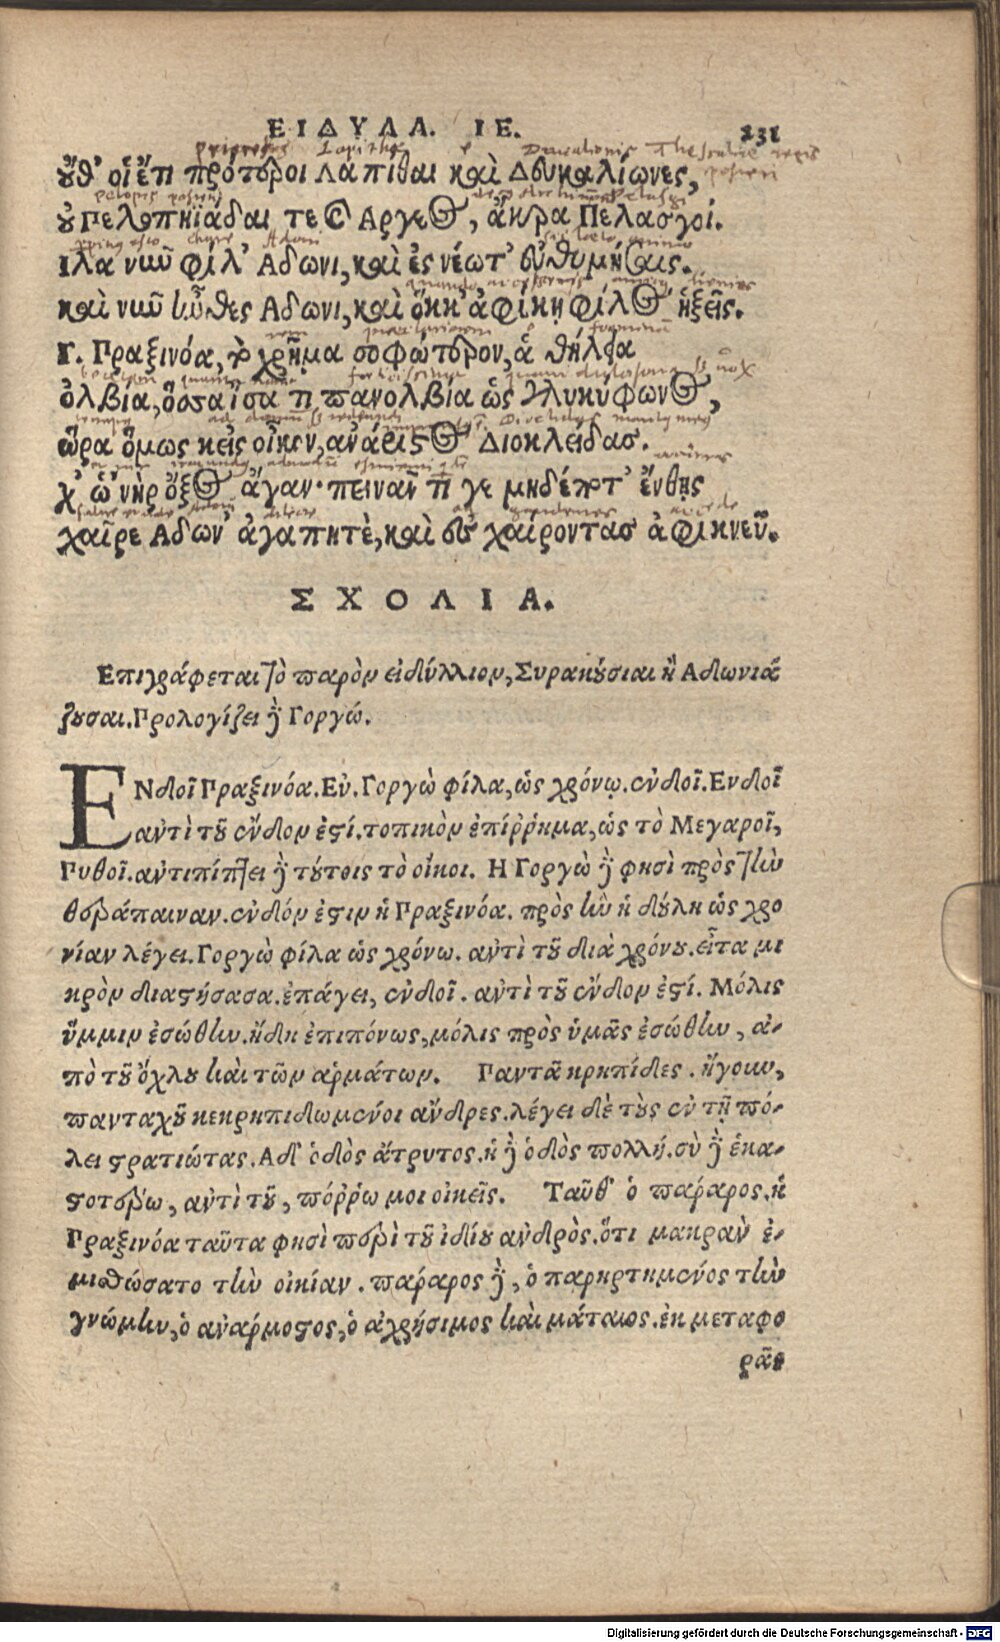 ΕΙΔΥΛΛ. ΙΕ. 231
οὔθ' οἱ ἔτι πρότεροι Λαπίθαι καὶ Δευκαλίωνες,
οὐ Πελοπηϊάδαι τε καὶ Αργεος, ἄκρα Πελασγοί.
Ιλα νιῦ φίλ' Αδωνι, καὶ ἐς νέωτ' εὐθυμήσαις.
καὶ νιῦ ἦνθες Αδωνι, καὶ ὅκκ' ἀφίκῃ φίλος ἡξεῖς.
Γ. Πραξινόα, τὸ χρῆμα σοφώτερον, ἁ θήλεια
ὀλβία, ὅσσα ἴσατι πανολβία ὡς γλυκυφωνος,
ὥρα ὅμως κεἰς οἶκον, ἀνάριστος Διοκλείδας.
χ' ὡνὴρ ὄξος ἄγαν· πεινᾶντί γε μηδέποτ' ἔνθῃς
χαῖρε Αδων' ἀγαπητὲ, καὶ ἐς χαίροντας ἀφικνεῦ.
ΣΧΟΛΙΑ.
Επιγράφεται τὸ παρὸν εἰδύλλιον, Συρακούσιαι ἢ Αδωνιά
ζουσαι. Προλογίζει δὲ Γοργώ.
ΕΝδοῖ Πραξινόα. Εν. Γοργὼ φίλα, ὡς χρόνῳ. ἐνδοῖ. Ενδοῖ
αντὶ τοῦ ἔνδον ἐστί. τοπικὸν ἐπίῤῥημα, ὡς τὸ Μεγαροῖ,
Πυθοῖ. αντιπίπτει δὲ τούτοις τὸ οἴκοι. Η Γοργὼ δὲ φησὶ πρὸς τὴν
θεράπαιναν. ἐνδόν ἐστιν ἡ Πραξινόα. πρὸς ἣν ἡ δούλη ὡς χρο
νίαν λέγει. Γοργὼ φίλα ὡς χρόνω. αντὶ τοῦ διὰ χρόνου. εἶτα μι
κρὸν διαστήσασα. ἐπάγει, ἐνδοῖ. αντὶ τοῦ ἔνδον ἐστί. Μόλις
ὔμμιν ἐσώθην. ἤδη ἐπιπόνως, μόλις πρὸς ὑμᾶς ἐσώθην, ἀ-
πὸ τοῦ ὄχλου καὶ τῶν αρμάτων. Παντᾶ κρηπίδες. ἤγουν,
πανταχοῦ κεκρηπιδωμένοι ἄνδρες. λέγει δὲ τοὺς ἐν τῇ πό-
λει στρατιώτας. Αδ' ὁδὸς ἄτρυτος. ἡ δὲ ὁδὸς πολλή. σὺ δὲ ἑκα-
στοτέρω, αντὶ τοῦ, πόῤῥω μοι οἰκεῖς. Ταῦθ' ὁ πάραρος. ἡ
Πραξινόα ταῦτα φησὶ περὶ τοῦ ἰδίου ανδρὸς. ὅτι μακρὰν ἐ-
μισθώσατο τὴν οἰκίαν. πάραρος δὲ, ὁ παρηρτημένος τὴν
γνώμην, ὁ ανάρμοστος, ὁ ἀχρήσιμος καὶ μάταιος. ἐκ μεταφο
ρᾶς
Digitalisierung gefördert durch die Deutsche Forschungsgemeinschaft - DFG